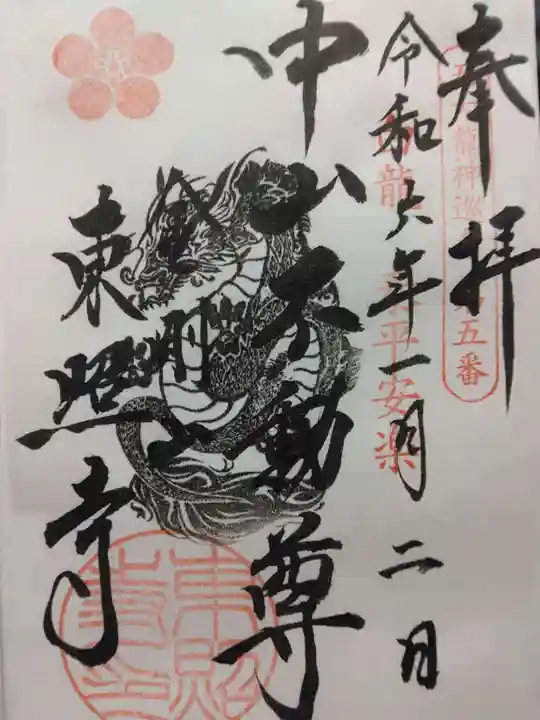 奉拝
令和六年一月二日
中山不動尊
金剛山
東照寺
龍神巡
第五番
龍
平安楽